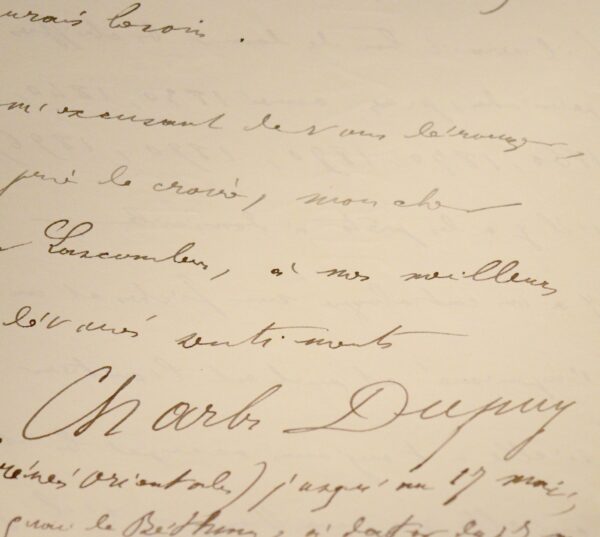 urais besoin.
m'excusant de vous déranger,
prie de croire, mon cher
Lascombes, à mes meilleurs
dévoués sentiments
Charles Dupuy
rénées orientales) jusqu'au 17 mai,
quai de Béthune, à dater du